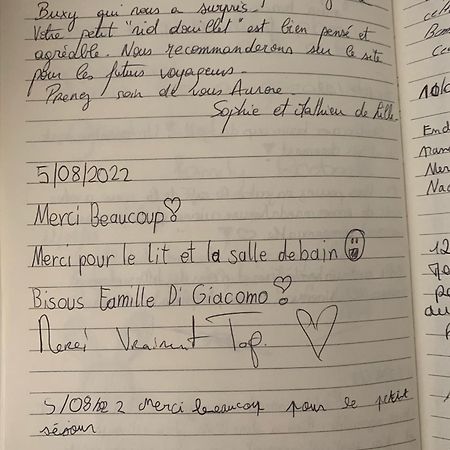 Buxy qui nous a surpris !
Votre petit "nid douillet" est bien pensé et
agréable. Nous recommanderons sur le site
pour les futurs voyageurs.
Prenez soin de vous Aurore.
Sophie et Mathieu de Lille.
5/08/2022
Merci Beaucoup
Merci pour le lit et la salle de bain
Bisous Famille Di Giacomo
Merci Vraiment Top.
5/08/22 Merci beaucoup pour le petit
séjour